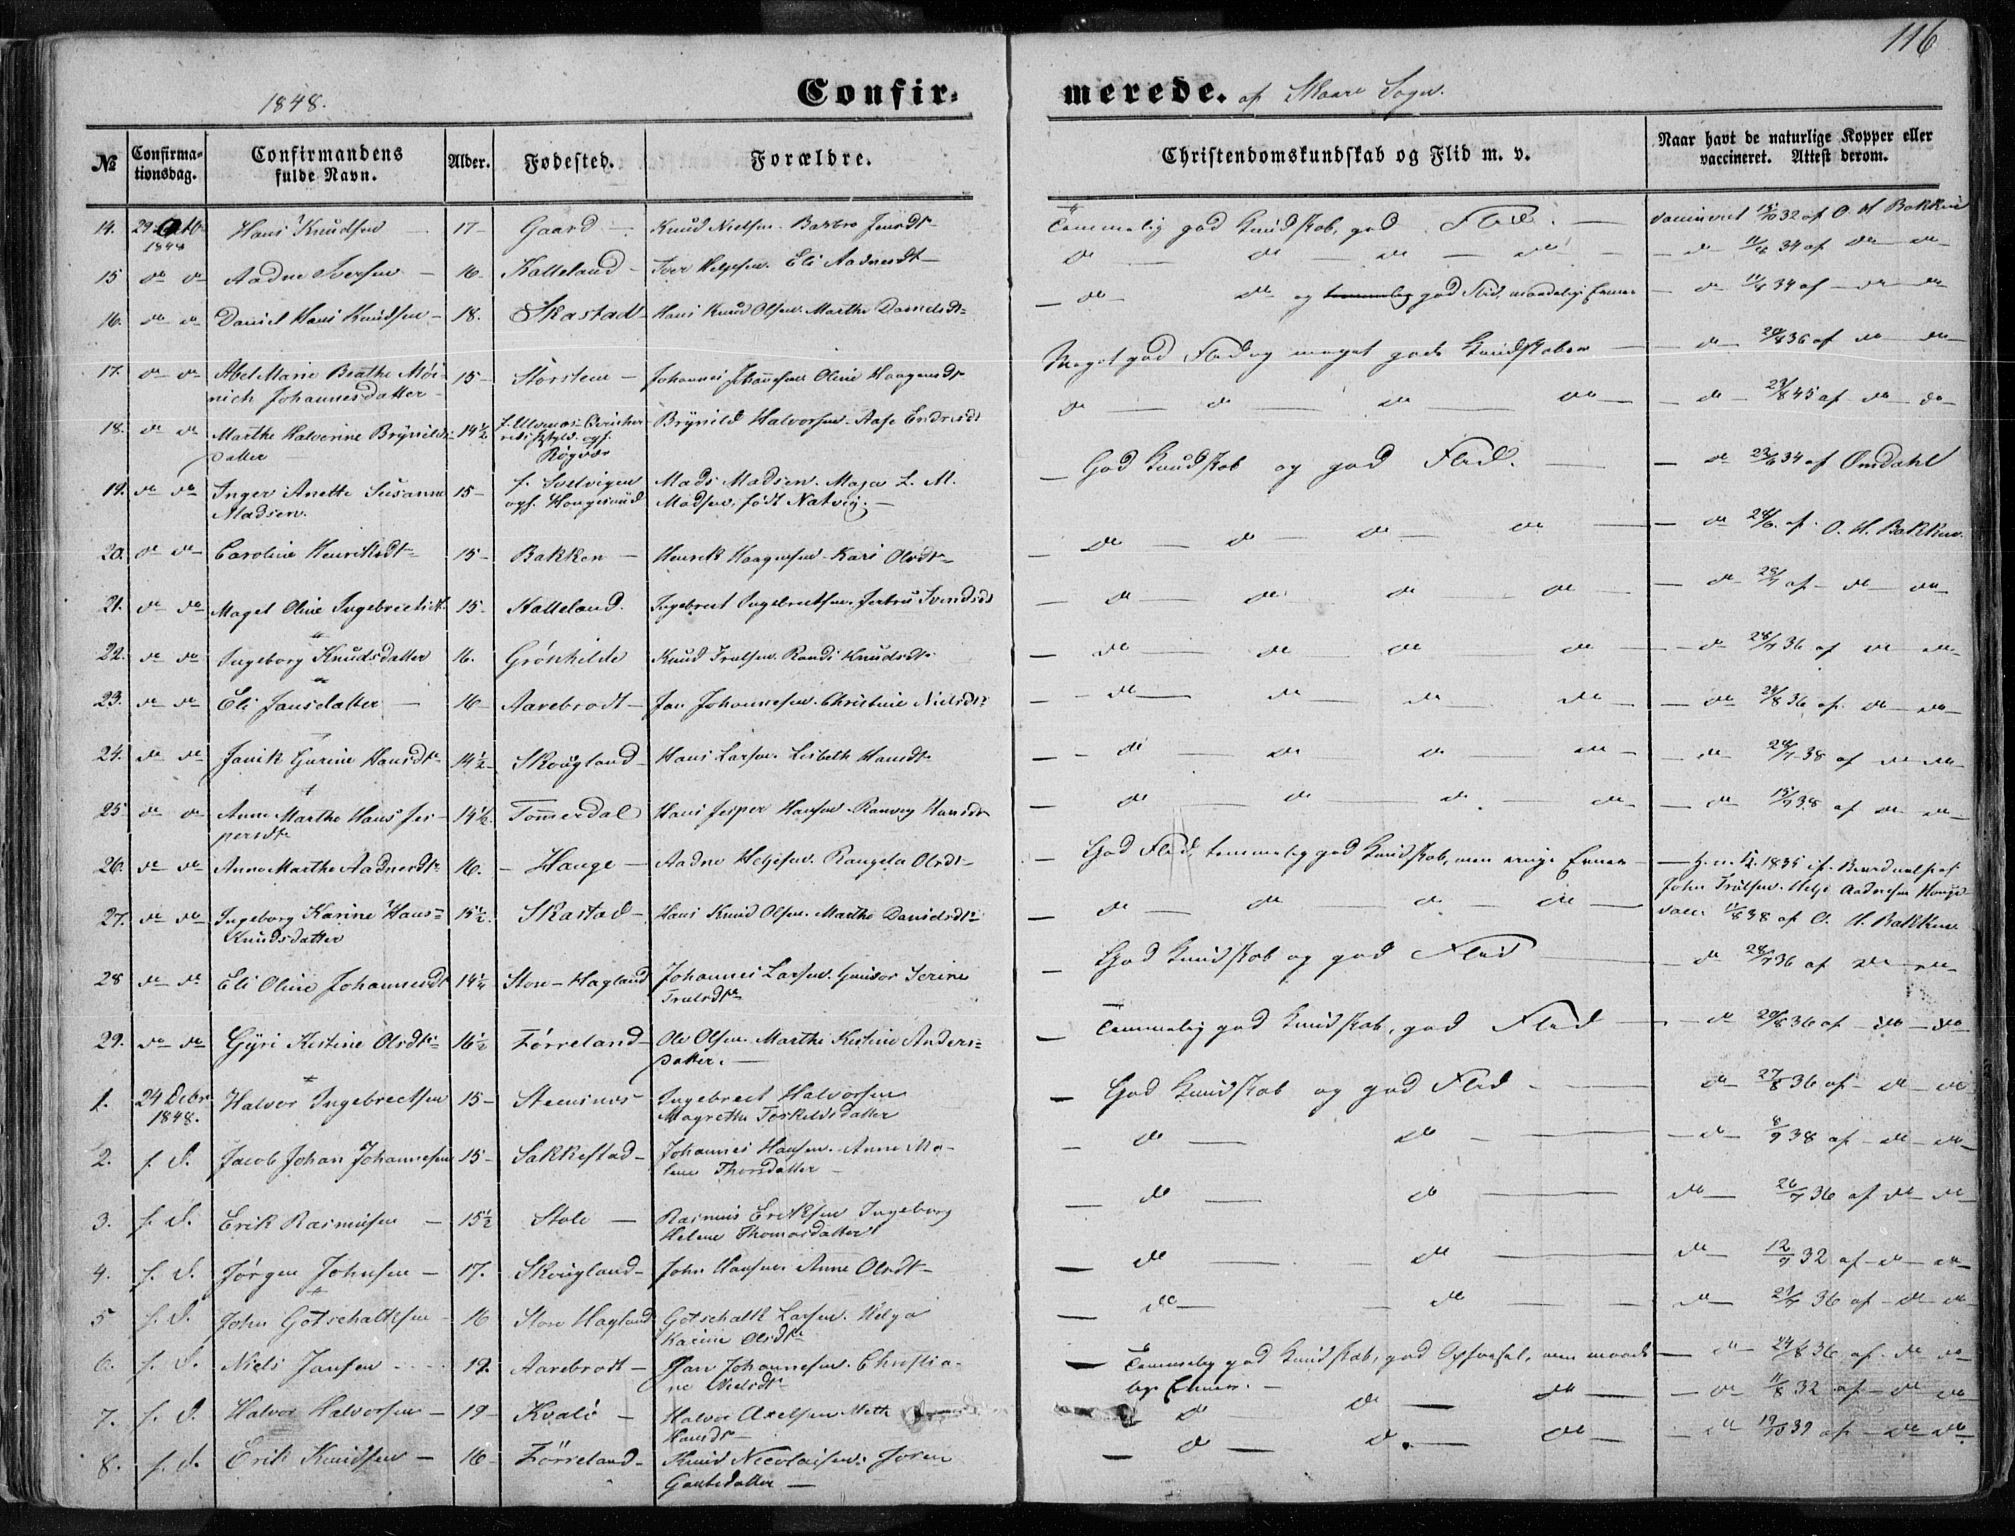 116
1848. Confirmerede. af Skaare Sogn.
№ Confirmationsdag. Confirmandens fulde Navn. Alder. Fødested. Forældre. Christendomskundskab og Flid m. v. Naar havt de naturlige Kopper eller vaccineret. Attest derom.
14. 29 Octb 1848 Hans Knudsen 17 Gaard Knud Nielsen. Barbro Jensdt Temmelig god Kundskab, god Flid. vaccineret 32 af O. H. Bakken
15 do do Aadne Iversen 16 Kalleland Iver Helgesen. Eli Aadnesdt do do do do do 34 af do do
16. do do Daniel Hans Knudsen 18. Skastad Hans Knud Olsen. Marthe Danielsdt do do og god Flid, maadelige Evner do 34 af do do
17. do do Abel Marie Beathe Møinich Johannesdatter 15 Storsteen Johannes Johannesen Oline Haagensdt Meget god Flid og meget gode Kundskaber do 24/8 36 af do do
18. do do Marthe Halverine Brynildsdatter 14½ Røgvær Brynild Halvorsen. Aase Endresdt do do do do do 23/8 45 af do do
19. do do Inger Anette Susanne Madsen. 15 f. Svelvigen opf. Haugesund Mads Madsen. Maja L. M. Madsen, født Natvig. God Kundskab og god Flid. do 23/6 34 af Omdahl
20. do do Caroline Henriksdt 15 Bakken Henrik Haagensen. Kari Olsdt do do do do do af O. H. Bakken.
21. do do Maget Oline Ingebrectsdt 15 Kalleland. Ingebrect Ingebrectsen. Jertru Svendsdt do do do do do af do do
22. do do Ingeborg Knudsdatter 16. Grønhilde Knud Trulsen. Randi Knudsdt do do do do do 28/7 36 af do do
23. do do Eli Jansdatter 16 Aarebrodt Jan Johannesen. Christine Nielsdt do do do do do 24/8 36 af do do
24. do do Janik Gurine Hansdt 14½ Skougland Hans Larsen. Lisbeth Hansdt do do do do do 38 af do do
25 do do Anne Marthe Hans Jespersdt 14½ Tømmerdal Hans Jesper Hansen. Ranveg Hansdt do do do do do 38 af do do
26. do do Anne Marthe Aadnesdt 16. Hauge Aadne Helgesen. Rangela Olsdt God Flid, temmelig god Kundskab, men ringe Evner 1835 af John Trulsen. Helje Aadnesen Hauge
27. do do Ingeborg Karine Hans Knudsdatter 15½. Skastad Hans Knud Olsen. Marthe Danielsdt do do do do vacc. 38 af O. H. Bakken
28 do do Eli Oline Johannesdt 14¼ Store-Hagland Johannes Larsen. Gunvor Serine Trulsdt God Kundskab og god Flid do 36 af do do
29. do do Gyri Kistine Olsdt 16½ Førreland Ole Olsen. Marthe Kistine Andersdatter. Temmelig god Kundskab, god Flid do 36 af do do
1. 24 Debr 1848. Halvor Ingebrectsen 15 Steensnæs Ingebrect Halvorsen Magrethe Torkildsdatter God Kundskab og god Flid do 27/8 36 af do do
2. f. D. Jacob Johan Johannesen 15 Sakkestad Johannes Hansen. Anne Malene Thorsdatter do do do 8/9 38 af do do
3. f. D. Erik Rasmusen 15½ Stole Rasmus Eriksen Ingeborg Helene Thomasdatter do do do 26/7 36 af do do
4. f. D. Jørgen Johnsen 17. Skougland John Hansen Anne Olsdt do do do 12/9 32 af do do
5 f. D. John Gotschalksen 16 Store Hagland Gotschalk Larsen. Helga Karine Olsdt do do do 36 af do do
6. f. D. Niels Jansen 19. Aarebrodt Jan Johannesen. Christiane Nielsdt Temmelig god Kundskab, god Opførsel, men maadelige Evner. do 24/8 36 af do do
7. f. D. Halvor Halvorsen 19 Kvalø Halvor Axelsen. Hansdt do do do do 11/8 32 af do do
8. f. D. Erik Knudsen 16 Førreland Knud Nicolaisen. Joren Gautesdatter do do do do 19/10 39 af do do